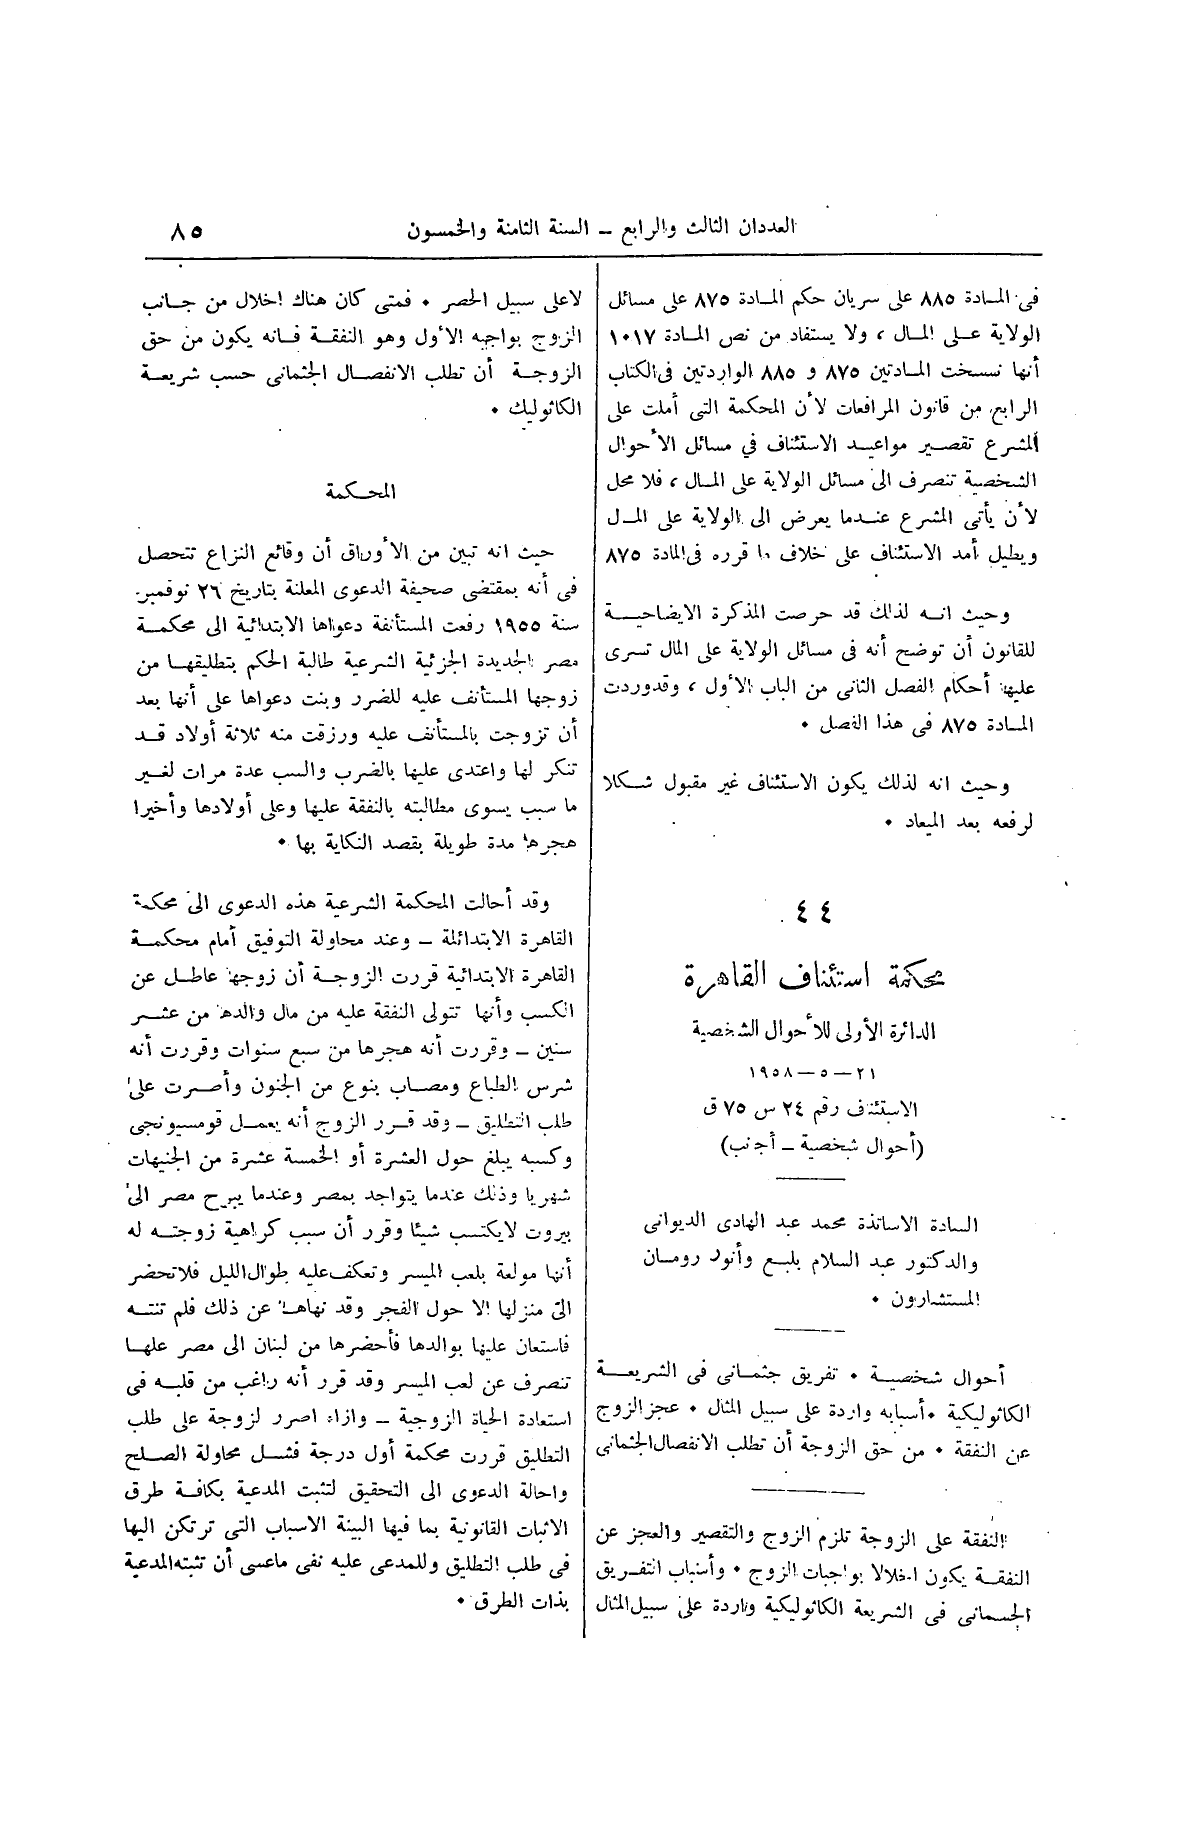 العددان الثالث والرابع – السنة الثامنة والخمسون
٨٥
فى المادة ٨٨٥ على سريان حكم المادة ٨٧٥ على مسائل
الولاية على المال ، ولا يستفاد من نص المادة ١٠١٧
أنها نسخت المادتين ٨٧٥ و ٨٨٥ الواردتين فى الكتاب
الرابع من قانون المرافعات لأن المحكمة التى أملت على
المشرع تقصير مواعيد الاستئناف في مسائل الأحوال
الشخصية تنصرف الى مسائل الولاية على المال ، فلا محل
لأن يأتى المشرع عندما يعرض الى الولاية على المال
ويطيل أمد الاستئناف على خلاف ما قرره فى المادة ٨٧٥
وحيث انه لذلك قد حرصت المذكرة الايضاحية
للقانون أن توضح أنه فى مسائل الولاية على المال تسرى
عليها أحكام الفصل الثانى من الباب الأول ، وقد وردت
المادة ٨٧٥ فى هذا الفصل ٠
وحيث انه لذلك يكون الاستئناف غير مقبول شكلا
لرفعه بعد الميعاد ٠
٤٤
محكمة استئناف القاهرة
الدائرة الأولى للأحوال الشخصية
٢١ – ٥ – ١٩٥٨
الاستئناف رقم ٢٤ س ٧٥ ق
(أحوال شخصية – أجنب)
السادة الاساتذة محمد عبد الهادى الديوانى
والدكتور عبد السلام بلبع وأنور رومان
المستشارون ٠
أحوال شخصية ٠ تفريق جثمانى فى الشريعة
الكاثوليكية ٠ أسبابه واردة على سبيل المثال ٠ عجز الزوج
عن النفقة ٠ من حق الزوجة أن تطلب الانفصال الجثمانى
النفقة على الزوجة تلزم الزوج والتقصير والعجز عن
النفقة يكون اخلالا بواجبات الزوج ٠ وأسباب التفريق
الجسمانى فى الشريعة الكاثوليكية واردة على سبيل المثال
لا على سبيل الحصر ٠ فمتى كان هناك اخلال من جانب
الزوج بواجبه الأول وهو النفقة فانه يكون من حق
الزوجة أن تطلب الانفصال الجثمانى حسب شريعة
الكاثوليك ٠
المحكمة
حيث انه تبين من الأوراق أن وقائع النزاع تتحصل
فى أنه بمقتضى صحيفة الدعوى المعلنة بتاريخ ٢٦ نوفمبر
سنة ١٩٥٥ رفعت المستأنفة دعواها الابتدائية الى محكمة
مصر الجديدة الجزئية الشرعية طالبة الحكم بتطليقها من
زوجها المستأنف عليه للضرر وبنت دعواها على أنها بعد
أن تزوجت بالمستأنف عليه ورزقت منه ثلاثة أولاد قد
تنكر لها واعتدى عليها بالضرب والسب عدة مرات لغير
ما سبب يسوى مطالبته بالنفقة عليها وعلى أولادها وأخيرا
هجرها مدة طويلة بقصد النكاية بها ٠
وقد أحالت المحكمة الشرعية هذه الدعوى الى محكمة
القاهرة الابتدائلة – وعند محاولة التوفيق أمام محكمة
القاهرة الابتدائية قررت الزوجة أن زوجها عاطل عن
الكسب وأنها تتولى النفقة عليه من مال والدها من عشر
سنين – وقررت أنه هجرها من سبع سنوات وقررت أنه
شرس الطباع ومصاب بنوع من الجنون وأصرت على
طلب التطليق – وقد قرر الزوج أنه يعمل قومسيونجى
وكسبه يبلغ حول العشرة أو الخمسة عشرة من الجنيهات
شهريا وذلك عندما يتواجد بمصر وعندما يبرح مصر الى
بيروت لا يكتسب شيئا وقرر أن سبب كراهية زوجته له
أنها مولعة بلعب الميسر وتعكف عليه طوال الليل فلا تحضر
الى منزلها الا حول الفجر وقد نهاها عن ذلك فلم تنته
فاستعان عليها بوالدها فأحضرها من لبنان الى مصر علها
تنصرف عن لعب الميسر وقد قرر أنه راغب من قلبه فى
استعادة الحياة الزوجية – وازاء اصرر لزوجة على طلب
التطليق قررت محكمة أول درجة فشل محاولة الصلح
واحالة الدعوى الى التحقيق لتثبت المدعية بكافة طرق
الاثبات القانونية بما فيها البينة الاسباب التى ترتكن اليها
فى طلب التطليق وللمدعى عليه نفى ما عسى أن تثبته المدعية
بذات الطرق ٠